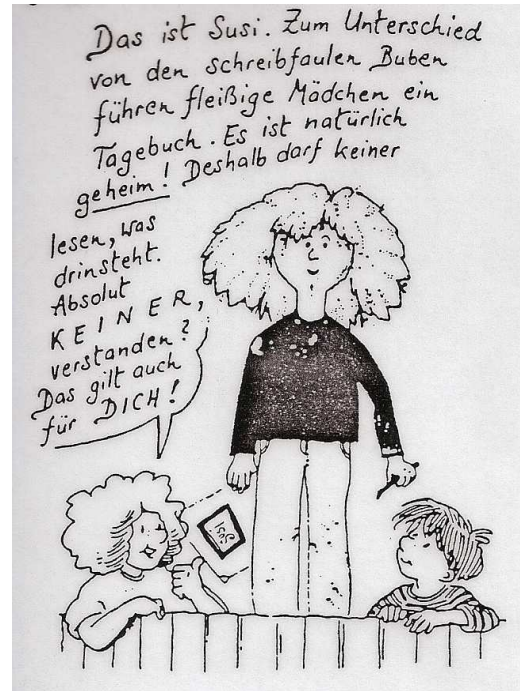 Das ist Susi. Zum Unterschied
von den schreibfaulen Buben
führen fleißige Mädchen ein
Tagebuch. Es ist natürlich
geheim! Deshalb darf keiner
lesen, was
drinsteht.
Absolut
KEINER,
verstanden?
Das gilt auch
für DICH!